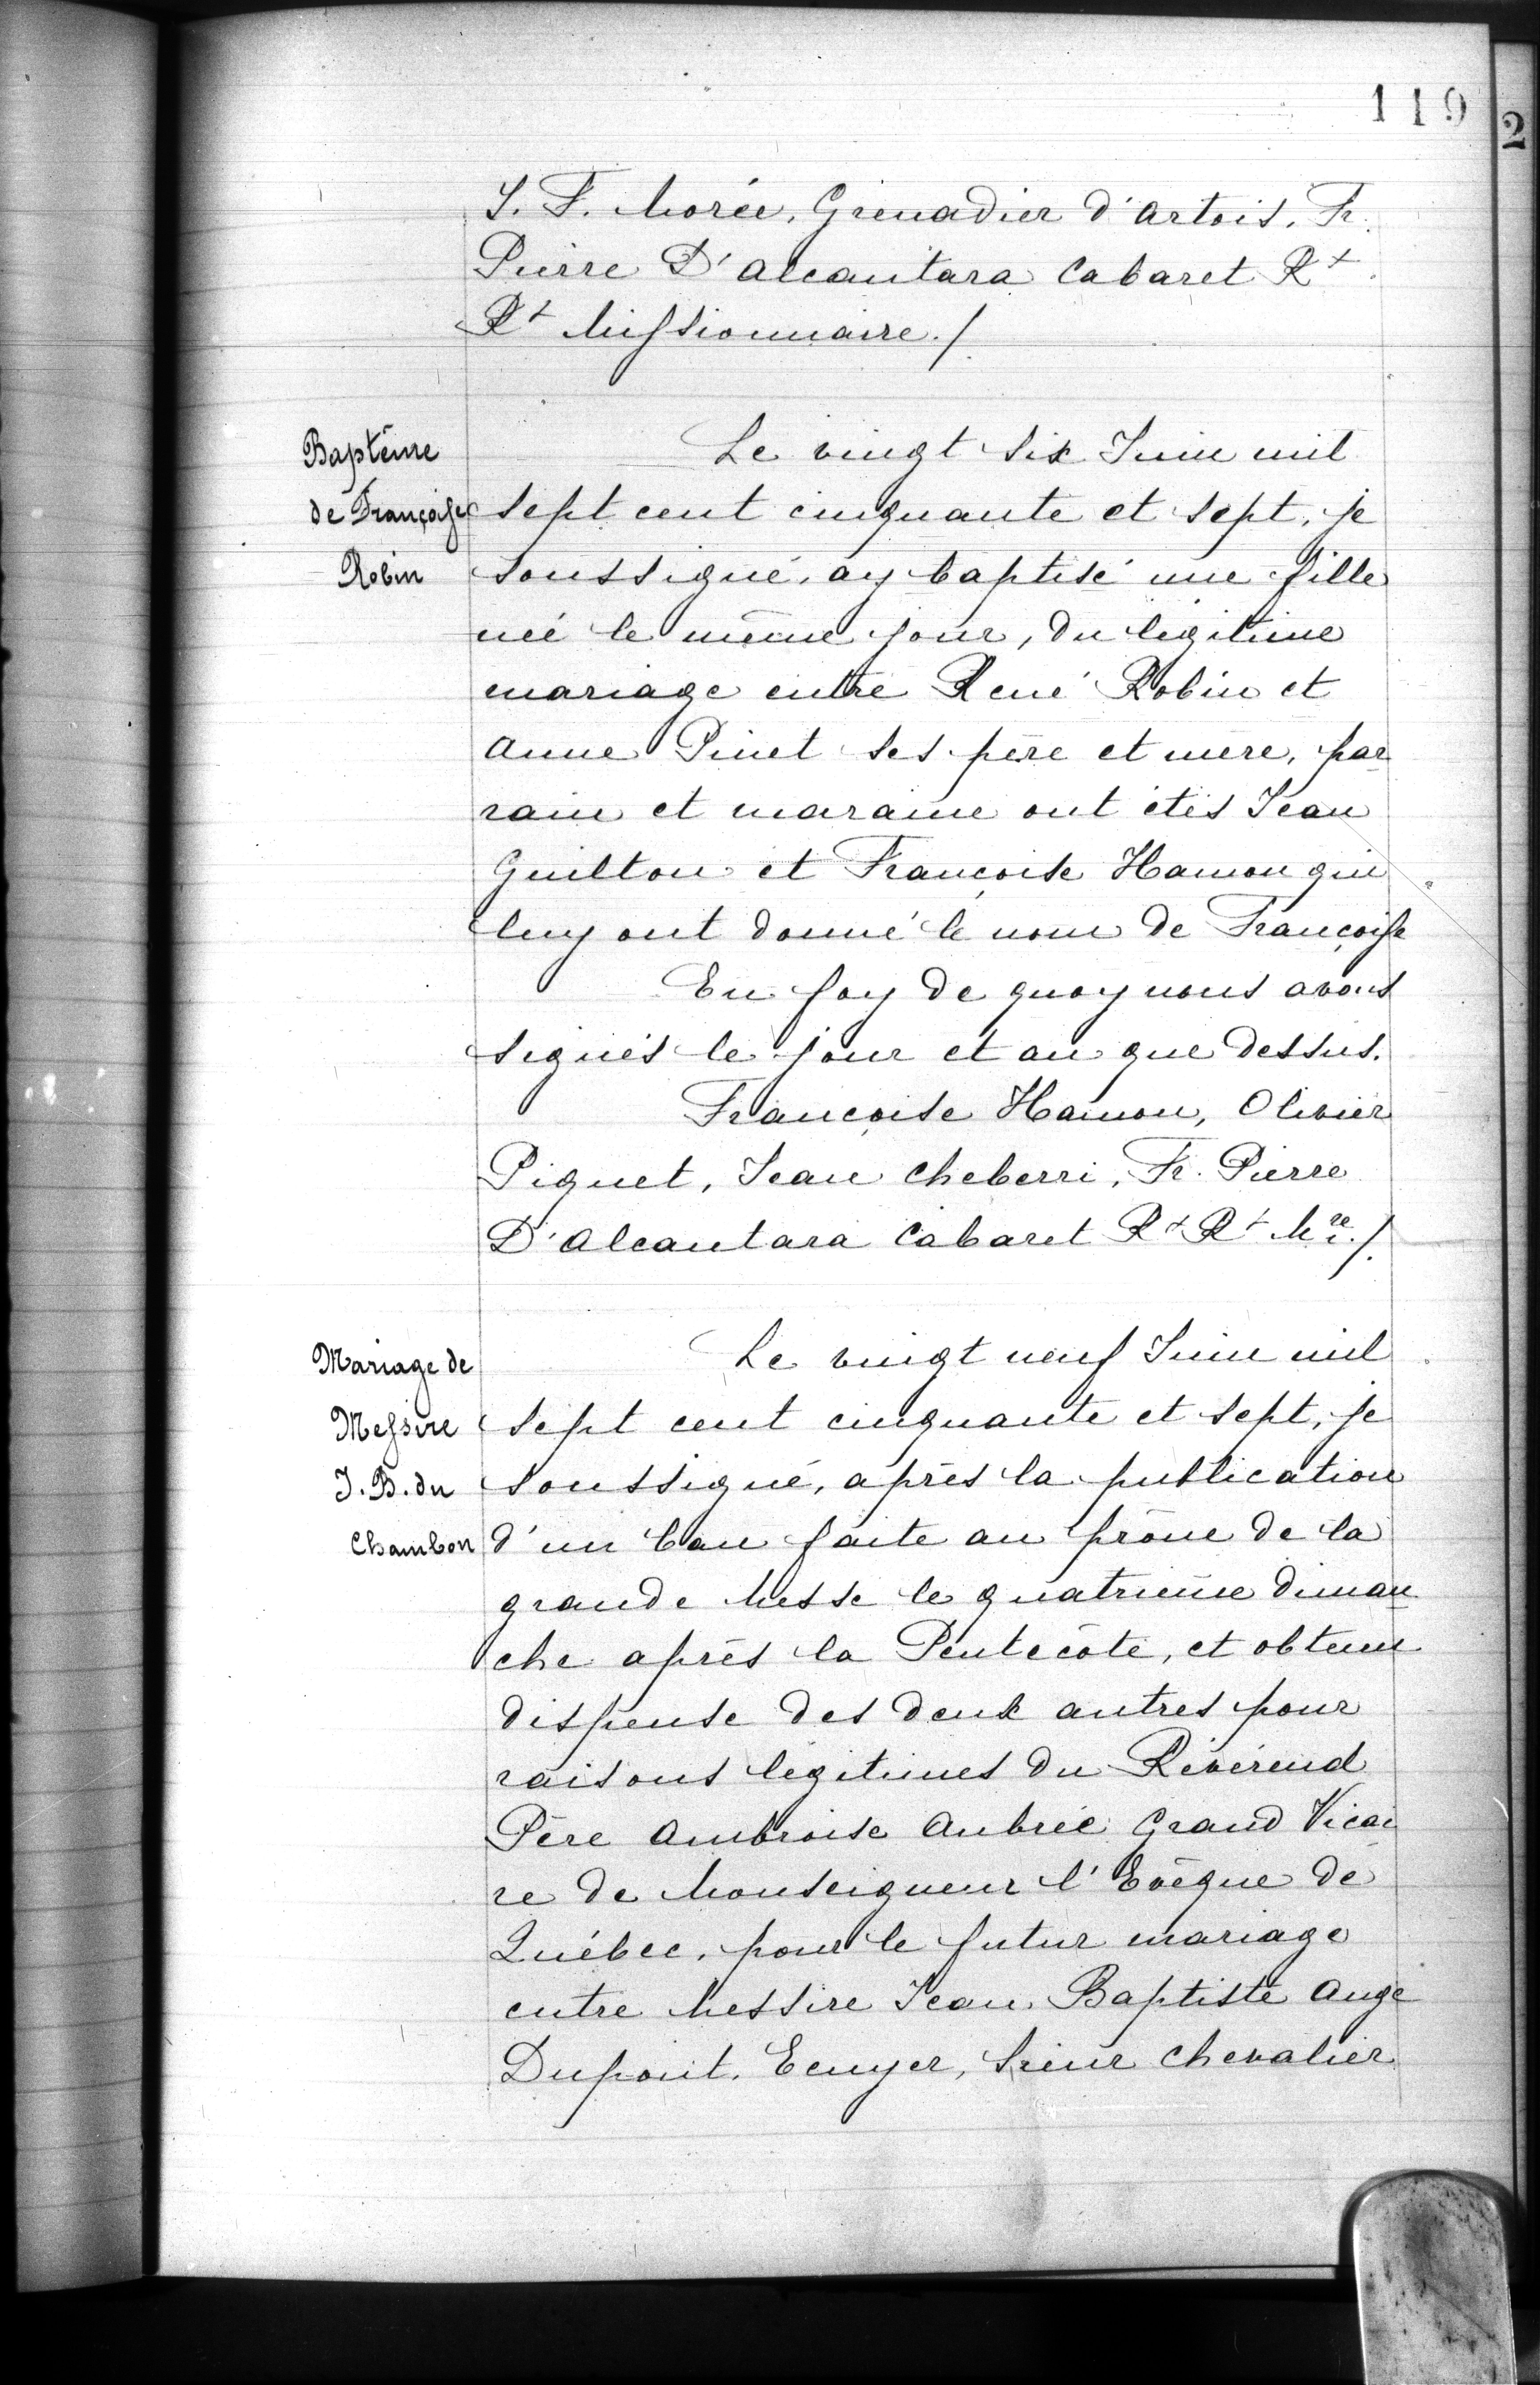 119
2
J. F. Morée, Grenadier d'artois, Fr.
Pierre D'alcantara Cabaret Rt
Rt Missionnaire./.
Baptême
de Françoise
Robin
Le vingt six Juin mil
sept cent cinquante et sept, je
soussigné, ay baptisé une fille
neé le même jour, du légitime
mariage entre René Robin et
anne Pinet ses père et mere, par
rain et maraine ont étés Jean
Guilton et Françoise Hamon qui
luy ont donné le nom de Françoise
En foy de quoy nous avons
signés le jour et an que dessus.
Françoise Hamon, Olivier
Piquet, Jean Cheberri, Fr. Pierre
D'Alcantara Cabaret Rt Rt Mre./.
Mariage de
Messire
J. B. du
Chambon
Le vingt neuf Juin mil
sept cent cinquante et sept, je
soussigné, après la publication
d'un ban faite au prône de la
grande Messe le quatrième diman
che après la Pentecôte, et obtenu
dispense des deux autres pour
raisons légitimes du Révérend
Père Ambroise Aubrée Grand Vicai
re de Monseigneur l'Evêque de
Québec, pour le futur mariage
entre Messire Jean Baptiste Ange
Dupont, Ecuyer, Sieur Chevalier